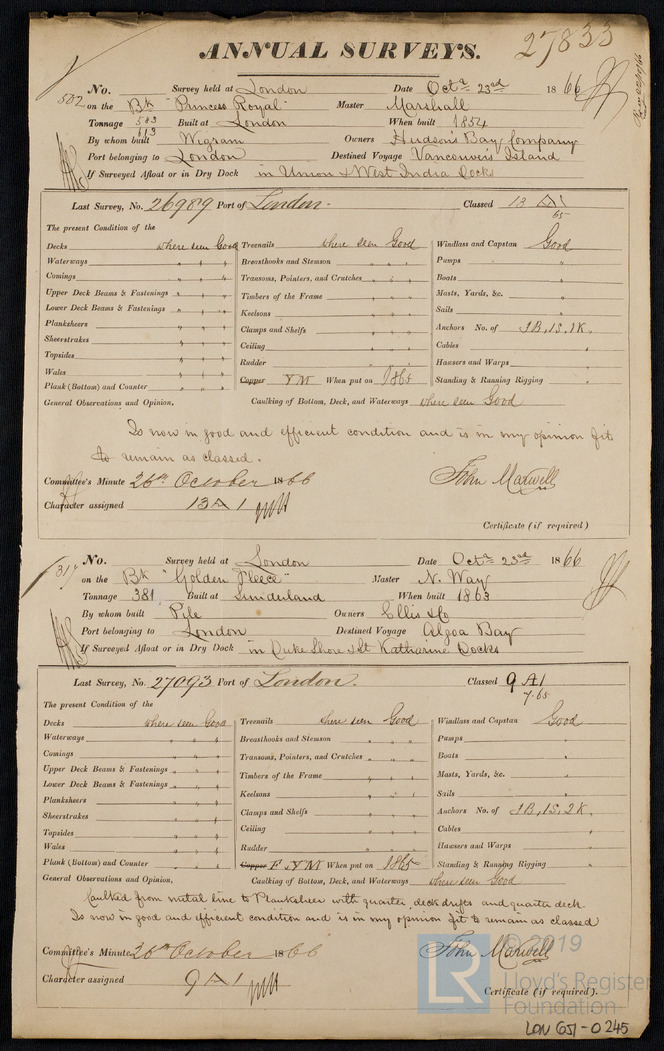 27833
ANNUAL SURVEYS.
No. Survey held at London Date Octr 23rd 1866
502 on the Bk "Princess Royal" Master Marshall
Tonnage 583 Built at London When built 1854
613
By whom built Wigram Owners Hudson's Bay Company
Port belonging to London Destined Voyage Vancouver's Island
If Surveyed Afloat or in Dry Dock in Union & West India Docks
Last Survey, No. 26989 Port of London. Classed 13 A1
65
The present Condition of the
Decks where seen Good Treenails where seen Good Windlass and Capstan Good
Waterways " " " Breasthooks and Stemson " " " Pumps "
Comings " " " Transoms, Pointers, and Crutches " " " Boats "
Upper Deck Beams & Fastenings " " " Timbers of the Frame " " " Masts, Yards, &c. "
Lower Deck Beams & Fastenings " " " Keelsons " " " Sails "
Planksheers " " " Clamps and Shelfs " " " Anchors No. of 3B, 1S, 1K.
Sheerstrakes " " " Ceiling " " " Cables "
Topsides " " " Rudder " " " Hawsers and Warps "
Wales " " " Copper YM When put on 1865 Standing & Running Rigging "
Plank (Bottom) and Counter " " "
General Observations and Opinion. Caulking of Bottom, Deck, and Waterways where seen Good
Is now in good and efficient condition and is in my opinion fit
to remain as classed.
Committee's Minute 26th October 1866 John Maxwell
Character assigned 13 A 1
Certificate (if required)
No. Survey held at London Date Octr 23rd 1866
317 on the Bk "Golden Fleece" Master N. Way
Tonnage 381 Built at Sunderland When built 1863
By whom built Pile Owners Ellis & Co
Port belonging to London Destined Voyage Algoa Bay
If Surveyed Afloat or in Dry Dock in Duke Shore & St Katharine Docks
Last Survey, No. 27093 Port of London. Classed 9 A1
7.65
The present Condition of the
Decks where seen Good Treenails where seen Good Windlass and Capstan Good
Waterways " " " Breasthooks and Stemson " " " Pumps "
Comings " " " Transoms, Pointers, and Crutches " " " Boats "
Upper Deck Beams & Fastenings " " " Timbers of the Frame " " " Masts, Yards, &c. "
Lower Deck Beams & Fastenings " " " Keelsons " " " Sails "
Planksheers " " " Clamps and Shelfs " " " Anchors No. of 3B, 1S, 2K.
Sheerstrakes " " " Ceiling " " " Cables "
Topsides " " " Rudder " " " Hawsers and Warps "
Wales " " " Copper F YM When put on 1865 Standing & Running Rigging "
Plank (Bottom) and Counter " " "
General Observations and Opinion, Caulking of Bottom, Deck, and Waterways where seen Good
Caulked from metal line to Planksheer with quarter, deck drifts and quarter deck.
Is now in good and efficient condition and is in my opinion fit to remain as classed
Committee's Minute 26th October 1866 John Maxwell
Character assigned 9 A 1
Certificate (if required).
© 2019
LR Lloyd's Register
Foundation
LON 651-0245